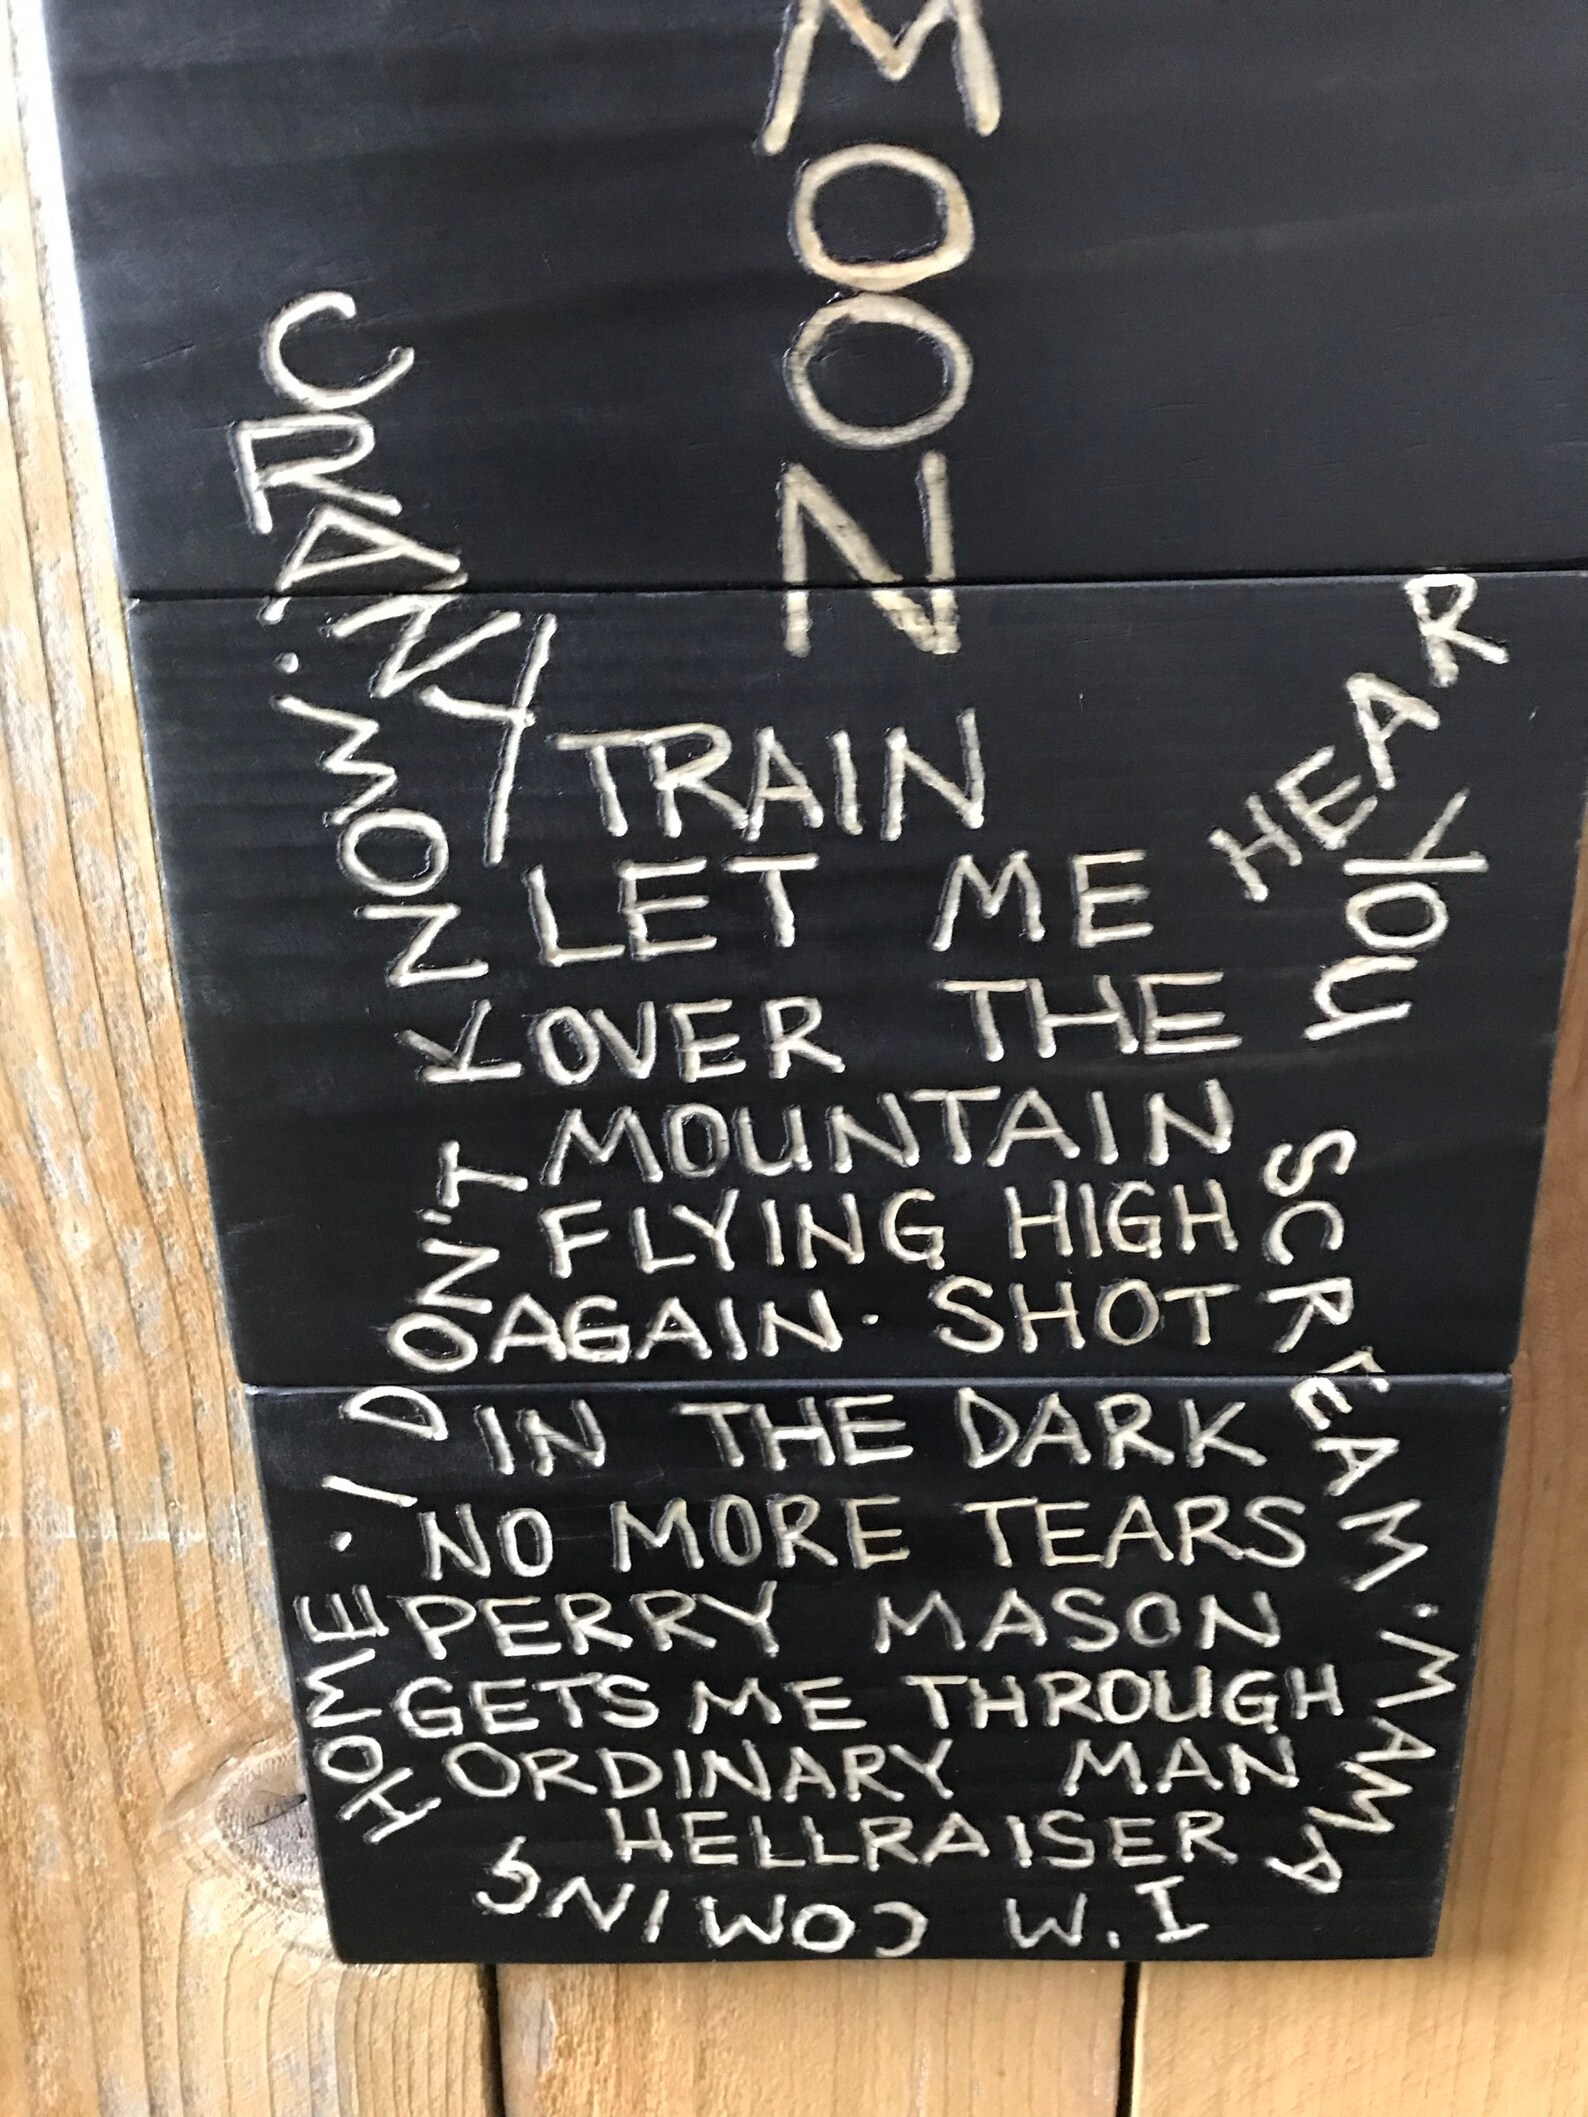 MOON
CRAZY TRAIN
LET ME HEAR YOU SCREAM · MAMA I'M COMING HOME · I DON'T KNOW ·
OVER THE
MOUNTAIN
FLYING HIGH
AGAIN · SHOT
IN THE DARK
NO MORE TEARS
PERRY MASON
GETS ME THROUGH
ORDINARY MAN
HELLRAISER